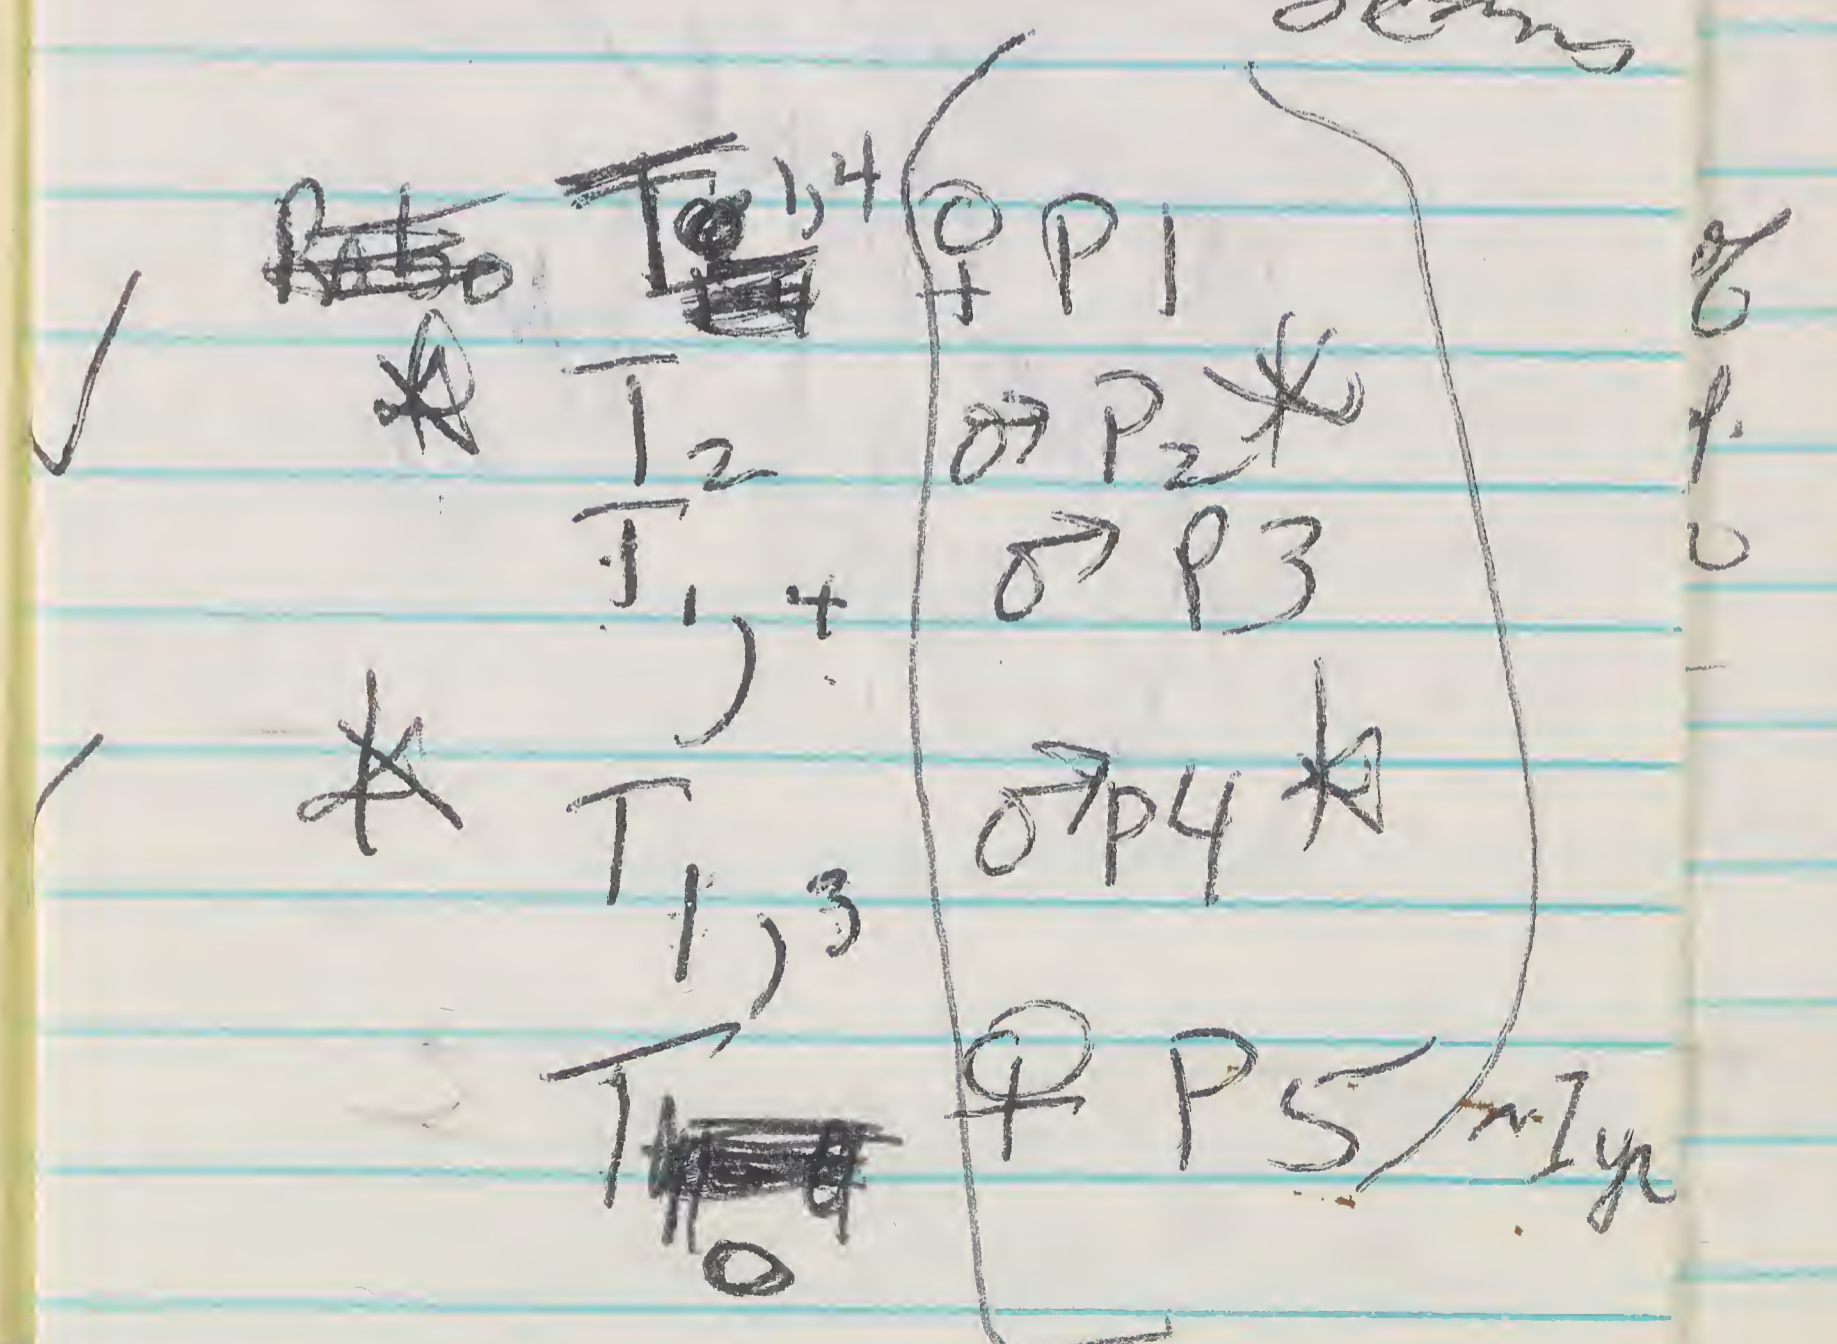 T 1,4 ♀ P1
☆ T2 ♂ P2 ☆
T1,4 ♂ P3
☆ T1,3 ♂ P4 ☆
T0 ♀ P5 ~1yr